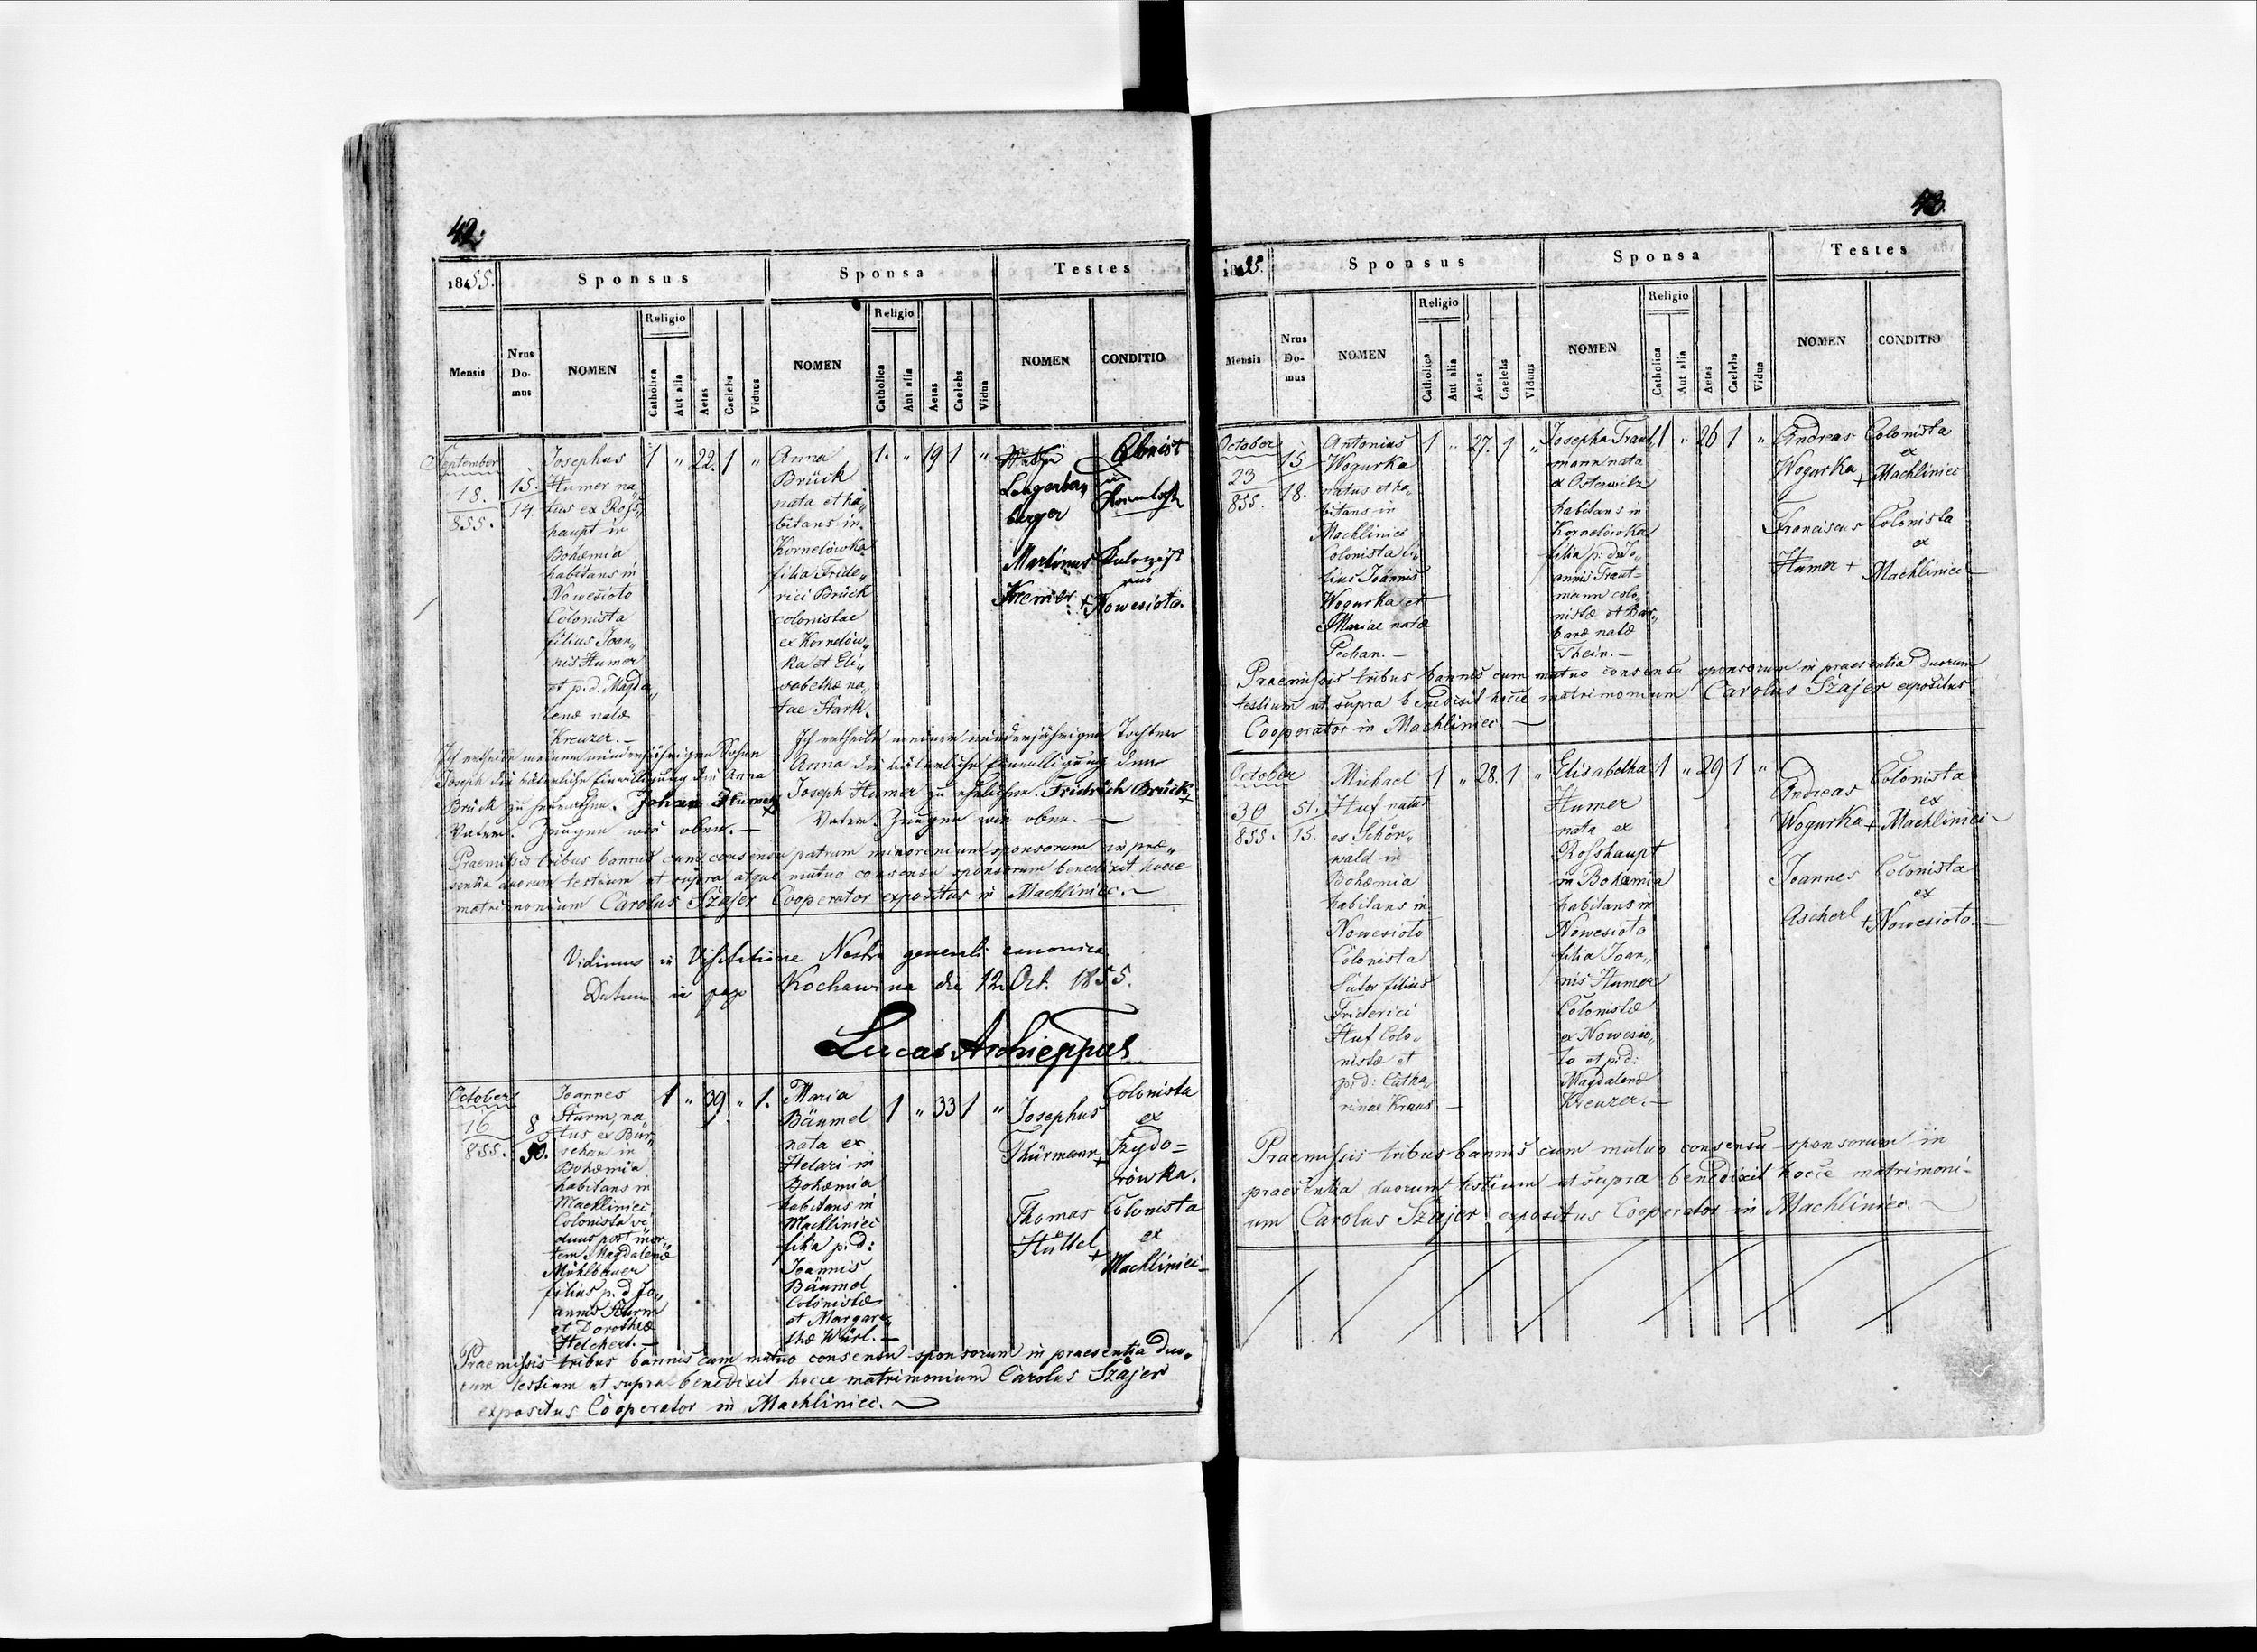 42.
1855.
Sponsus
Sponsa
Testes
Mensis
Nrus Domus
NOMEN
Religio
Catholica
Aut alia
Aetas
Caelebs
Viduus
NOMEN
Religio
Catholica
Aut alia
Aetas
Caelebs
Vidua
NOMEN
CONDITIO
September
18.
855.
15.
14.
Josephus
Humer na„
tus ex Ross„
haupt in
Bohemia
habitans in
Nowesioto
Colonista
filius Joan„
nis Humer
et p. d. Magda„
lenæ natæ
Kreuzer. —
1 „ 22. 1 „
Anna
Brück
nata et ha„
bitans in
Kornelówka
filia Fride„
rici Brück
colonistae
ex Kornelów„
ka et Eli„
sabethæ na„
tae Stark.
1. „ 19 1 „
berger
Martinus
Kremer +
aus
Nowesioto.
Ich ertheile meinem minderjährigen Sohne
Joseph die väterliche Einwilligung die Anna
Brück zu heurathen. Johan Humer +
Vater. Zeugen wie oben. —
Ich ertheile meiner minderjährigen Tochter
Anna die väterliche Einwilligung den
Joseph Humer zu ehelichen. Fridrich Brück +
Vater. Zeugen wie oben. —
Praemissis tribus bannis cum consensu patrum minorenium sponsorum in præ„
sentia duorum testium ut supra atque mutuo consensu sponsorum benedixit hocce
matrimonium Carolus Szajer Cooperator expositus in Machliniec. —
Vidimus in Visitatione Nostra generali canonica
Datum in pago Kochawina die 12 Oct. 1855.
Lucas Archieppus
October
16
855.
8
50.
Joannes
Sturm, na„
tus ex Bür„
schau in
Bohemia
habitans in
Machliniec
Colonista vi„
duus post mor„
tem Magdalenæ
Mühlbauer
filius p. d Jo„
annis Sturm
et Dorotheæ
Helchert. —
1 „ 39. „ 1.
Maria
Bäumel
nata ex
Helari in
Bohemia
habitans in
Machliniec
filia p. d:
Joannis
Bäumel
Colonistæ
et Margare„
thæ Würl. —
1 „ 33 1 „
Josephus
Thürmann +
Colonista
ex
Izydo=
rówka.
Thomas
Hüttel +
Colonista
ex
Machliniec —
Praemissis tribus bannis cum mutuo consensu sponsorum in praesentia duo„
rum testium ut supra benedixit hocce matrimonium Carolus Szajer
expositus Cooperator in Machliniec. —
43.
1855.
Sponsus
Sponsa
Testes
Mensis
Nrus Domus
NOMEN
Religio
Catholica
Aut alia
Aetas
Caelebs
Viduus
NOMEN
Religio
Catholica
Aut alia
Aetas
Caelebs
Vidua
NOMEN
CONDITIO
October
23
855.
15
18.
Antonius
Wogurka
natus et ha„
bitans in
Machliniec
Colonista fi„
lius Joannis
Wogurka et
Mariae natæ
Pechan. —
1 „ 27. 1 „
Josepha Traut„
mann nata
ex Osterwitz
habitans in
Kornelówka
filia p: d: Jo„
annis Traut=
mann colo„
nistæ et Bar„
baræ natæ
Thein. —
1 „ 26 1 „
Andreas
Wogurka +
Colonista
ex
Machliniec
Franciscus
Humer +
Colonista
ex
Machliniec —
Praemissis tribus bannis cum mutuo consensu sponsorum in praesentia duorum
testium ut supra benedixit hocce matrimonium Carolus Szajer expositus
Cooperator in Machliniec. —
October
30
855.
51.
15.
Michael
Huf natus
ex Schön„
wald in
Bohemia
habitans in
Nowesioto
Colonista
Sutor filius
Friderici
Huf Colo„
nistæ et
p: d: Catha„
rinae Kraus —
1 „ 28. 1 „
Elisabetha
Humer
nata ex
Rosshaupt
in Bohemia
habitans in
Nowesioto
filia Joan„
nis Humer
Colonistæ
ex Nowesio„
to et p: d:
Magdalenæ
Kreuzer. —
1 „ 29 1 „
Andreas
Wogurka +
Colonista
ex
Machliniec —
Joannes
Ascherl +
Colonista
ex
Nowesioto. —
Praemissis tribus bannis cum mutuo consensu sponsorum in
praesentia duorum testium ut supra benedixit hocce matrimoni=
um Carolus Szajer expositus Cooperator in Machliniec. —